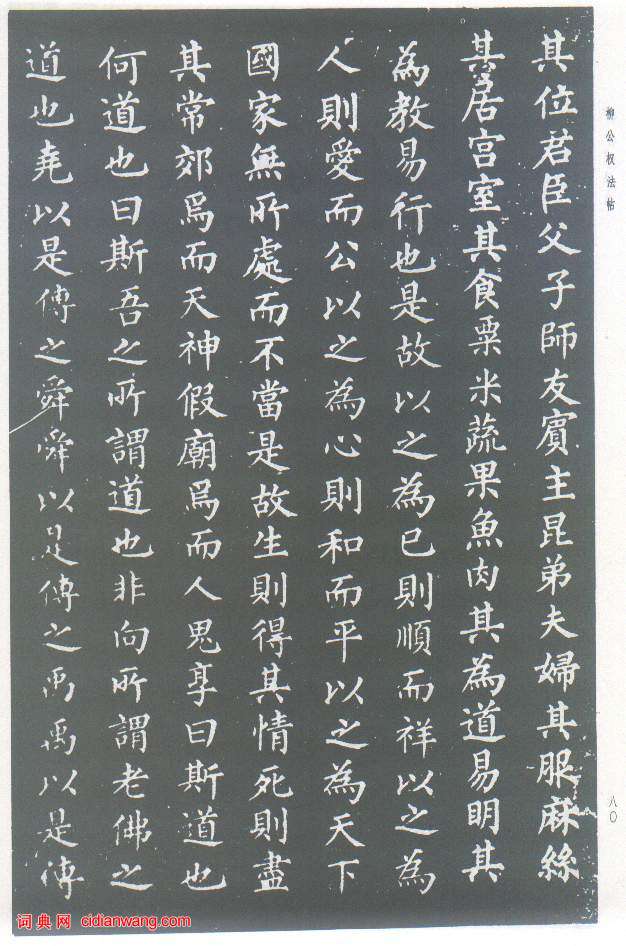 柳公权法帖
八〇
其位君臣父子師友賓主昆弟夫婦其服麻絲
其居宮室其食粟米蔬果魚肉其為道易明其
為教易行也是故以之為己則順而祥以之為
人則愛而公以之為心則和而平以之為天下
國家無所處而不當是故生則得其情死則盡
其常郊焉而天神假廟焉而人鬼享曰斯道也
何道也曰斯吾之所謂道也非向所謂老佛之
道也堯以是傳之舜舜以是傳之禹禹以是傳
词典网 cidianwang.com